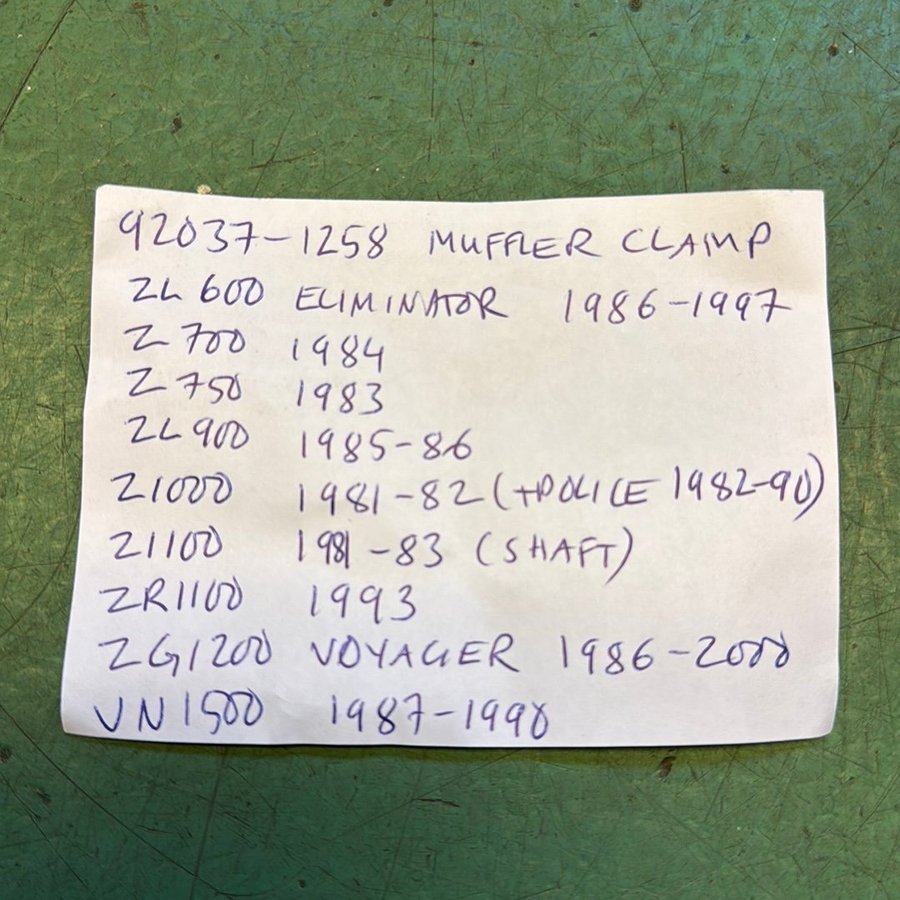 92037-1258 MUFFLER CLAMP
ZL 600 ELIMINATOR 1986-1997
Z 700 1984
Z 750 1983
ZL 900 1985-86
Z1000 1981-82 (+POLICE 1982-90)
Z1100 1981-83 (SHAFT)
ZR1100 1993
ZG1200 VOYAGER 1986-2000
VN1500 1987-1990